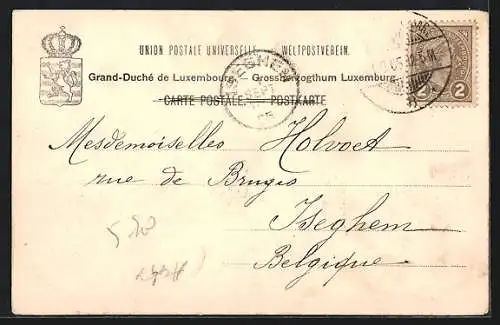 UNION POSTALE UNIVERSELLE. WELTPOSTVEREIN.
Grand-Duché de Luxembourg. Grossherzogthum Luxemburg.
CARTE POSTALE. POSTKARTE
ISEGHEM
SEPT
2 2
Mesdemoiselles Holvoet
rue de Bruges
Iseghem
Belgique